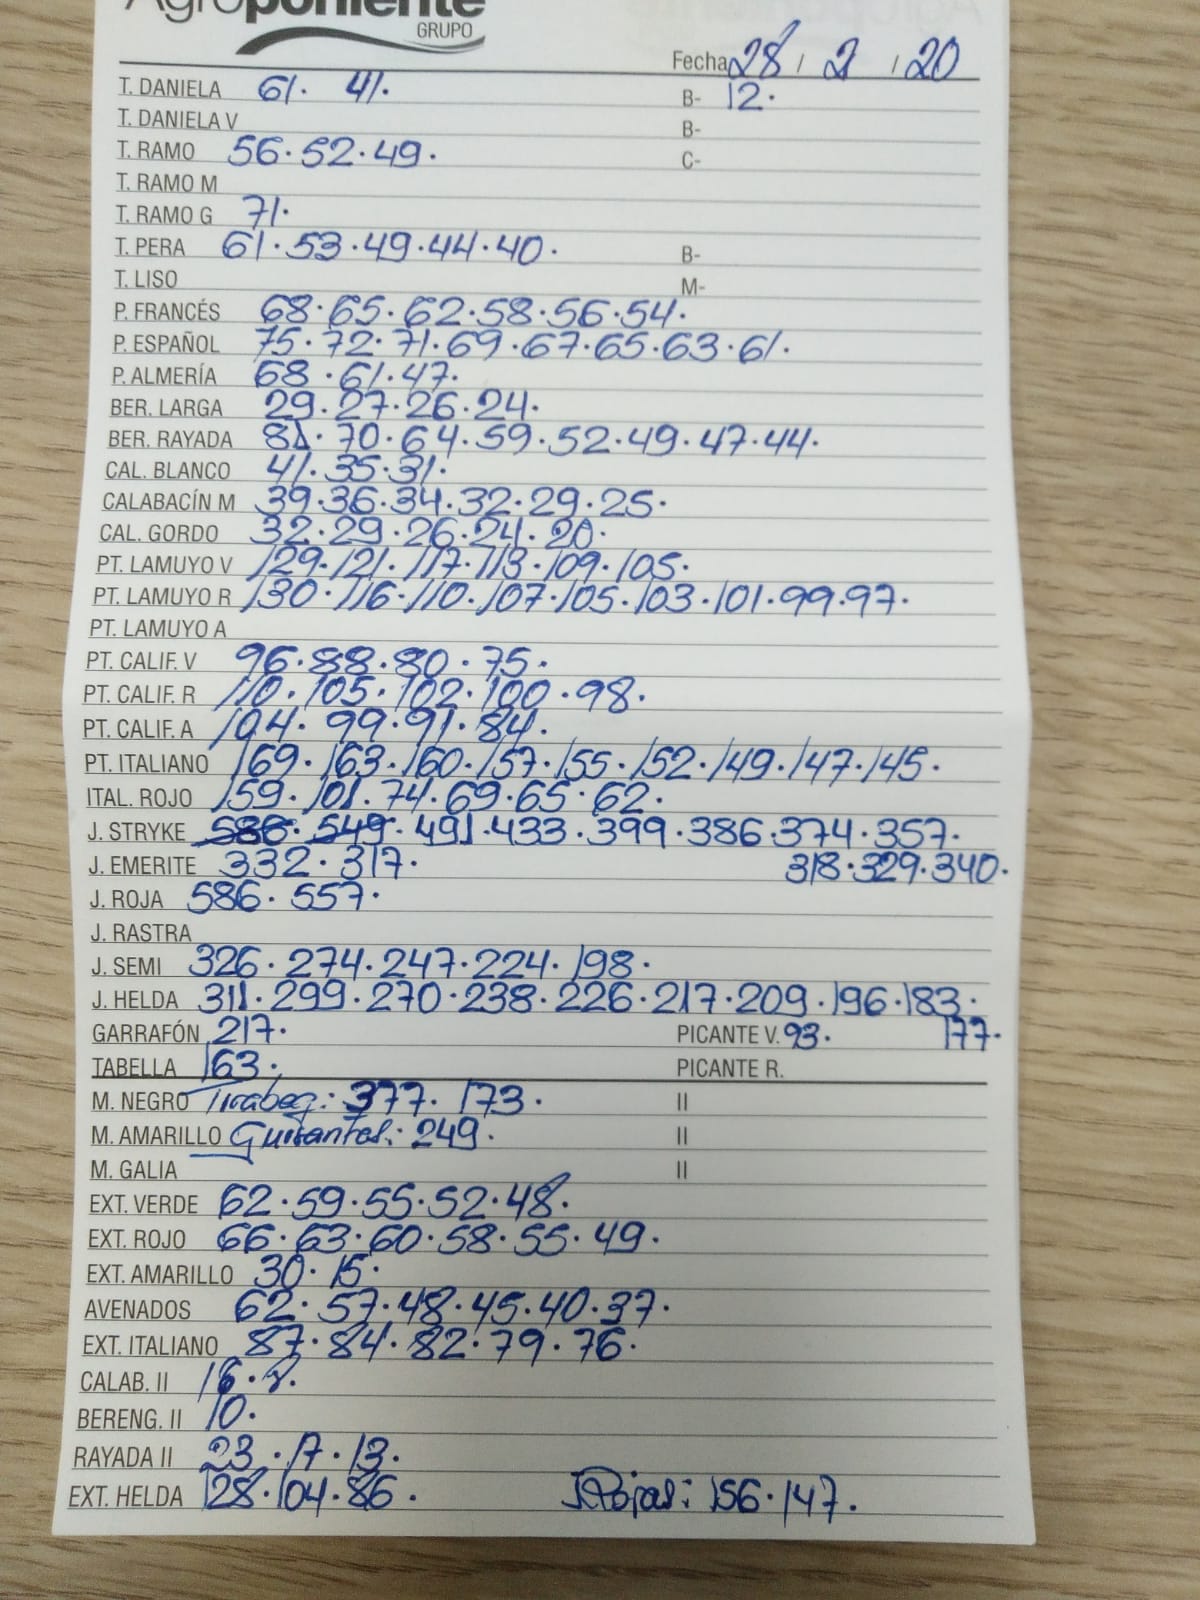 Agroponiente
GRUPO
Fecha 28 / 2 / 20
T. DANIELA 61. 41. B- 12.
T. DANIELA V B-
T. RAMO 56. 52. 49. C-
T. RAMO M
T. RAMO G 71.
T. PERA 61. 53. 49. 44. 40. B-
T. LISO M-
P. FRANCÉS 68. 65. 62. 58. 56. 54.
P. ESPAÑOL 75. 72. 71. 69. 67. 65. 63. 61.
P. ALMERÍA 68. 61. 47.
BER. LARGA 29. 27. 26. 24.
BER. RAYADA 81. 70. 64. 59. 52. 49. 47. 44.
CAL. BLANCO 41. 35. 31.
CALABACÍN M 39. 36. 34. 32. 29. 25.
CAL. GORDO 32. 29. 26. 24. 20.
PT. LAMUYO V 129. 121. 117. 113. 109. 105.
PT. LAMUYO R 130. 116. 110. 107. 105. 103. 101. 99. 97.
PT. LAMUYO A
PT. CALIF. V 96. 88. 80. 75.
PT. CALIF. R 110. 105. 102. 100. 98.
PT. CALIF. A 104. 99. 91. 84.
PT. ITALIANO 169. 163. 160. 157. 155. 152. 149. 147. 145.
ITAL. ROJO 159. 101. 74. 69. 65. 62.
J. STRYKE 586. 549. 491. 433. 399. 386. 374. 357.
J. EMERITE 332. 317. 318. 329. 340.
J. ROJA 586. 557.
J. RASTRA
J. SEMI 326. 274. 247. 224. 198.
J. HELDA 311. 299. 270. 238. 226. 217. 209. 196. 183.
GARRAFÓN 217. PICANTE V. 93. 177.
TABELLA 163. PICANTE R.
M. NEGRO Tirabeq: 377. 173. II
M. AMARILLO Guisantes: 249. II
M. GALIA II
EXT. VERDE 62. 59. 55. 52. 48.
EXT. ROJO 66. 63. 60. 58. 55. 49.
EXT. AMARILLO 30. 15.
AVENADOS 62. 57. 48. 45. 40. 37.
EXT. ITALIANO 87. 84. 82. 79. 76.
CALAB. II 16. 8.
BERENG. II 10.
RAYADA II 23. 17. 13.
EXT. HELDA 128. 104. 86. J. Rojas: 156. 147.